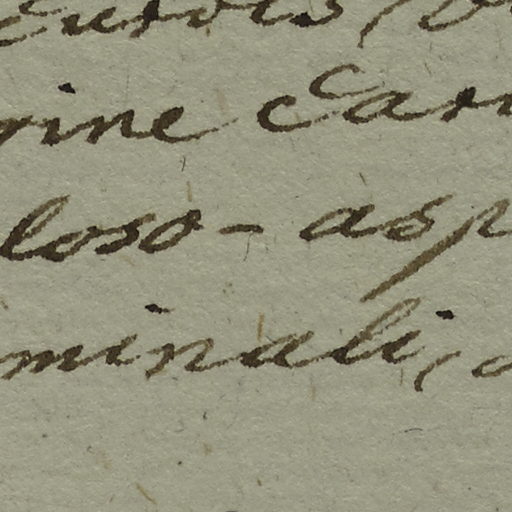 rine car
loso-asp
minali,